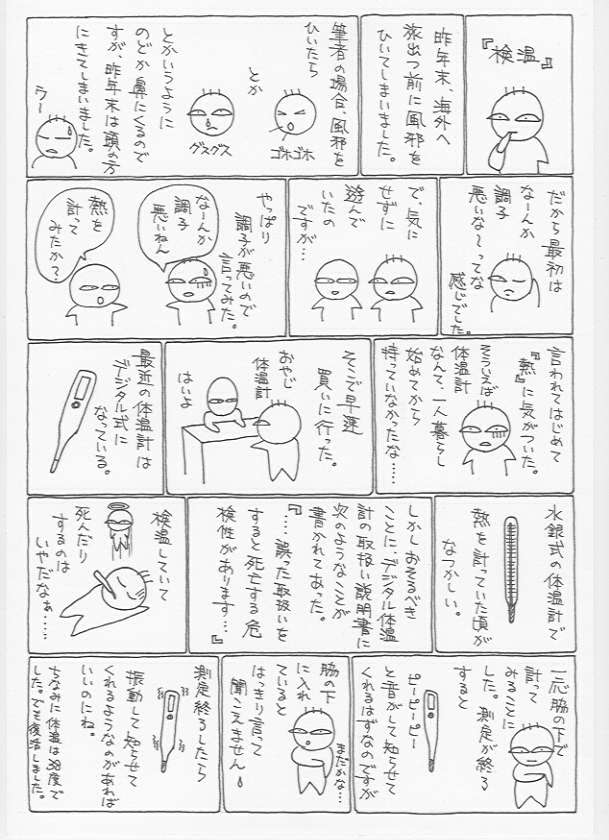 『検温』
昨年末、海外へ
旅出つ前に風邪を
ひいてしまいました。
筆者の場合、風邪を
ひいたら
ゴホゴホ
とか
グスグス
とかいうように
のどか鼻にくるので
すが、昨年末は頭の方
にきてしまいました。
う〜
だから最初は
なーんか
調子
悪いな〜ってな
感じでした。
で、気に
せずに
遊んで
いたの
ですが…
やっぱり
調子が悪いので
言ってみた。
なーんか
調子
悪いねん
熱を
計って
みたか？
言われてはじめて
『熱』に気がついた。
そういえば
体温計
なんて、一人暮らし
始めてから
持っていなかったな……
そこで早速
買いに行った。
おやじ
体温計
はいよ
最近の体温計は
デジタル式に
なっている。
水銀式の体温計で
熱を計っていた頃が
なつかしい。
しかしおそるべき
ことに、デジタル体温
計の取扱い説明書に
次のようなことが
書かれてあった。
『……誤った取扱いを
すると死亡する危
険性があります…』
検温していて
死んだり
するのは
いやだなぁ……
一応脇の下で
計って
みることに
した。測定が終る
すると
ピーピーピー
と音がして知らせて
くれるはずなのですが
脇の下
に入れ
ていると
はっきり言って
聞こえません。
まだかな…
測定終了したら
振動して知らせて
くれるようなのがあれば
いいのにね。
ちなみに体温は38度で
した。でも復活しました。